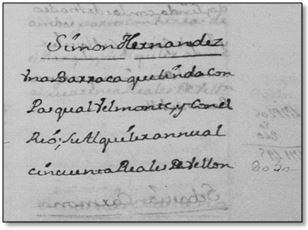 Simon Hernandez
Vna Barraca que linda con
Pasqual Velmonte, y con el
Rio; su Alquiler annual
cincuenta Reales de Vellon